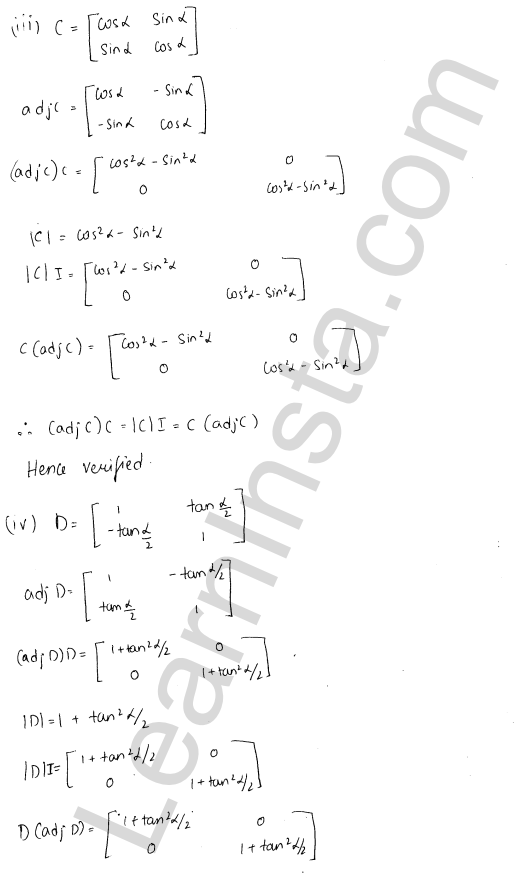 (iii) C = [cosα sinα
sinα cosα]
adjC = [cosα -sinα
-sinα cosα]
(adjC)C = [cos²α - sin²α 0
0 cos²α - sin²α]
|C| = cos²α - sin²α
|C| I = [cos²α - sin²α 0
0 cos²α - sin²α]
C(adjC) = [cos²α - sin²α 0
0 cos²α - sin²α]
∴ (adjC)C = |C| I = C (adjC)
Hence verified.
(iv) D = [1 tan α/2
-tan α/2 1]
adj D = [1 -tan α/2
tan α/2 1]
(adj D)D = [1 + tan² α/2 0
0 1 + tan² α/2]
|D| = 1 + tan² α/2
|D|I = [1 + tan² α/2 0
0 1 + tan² α/2]
D(adj D) = [1 + tan² α/2 0
0 1 + tan² α/2]
LearnInsta.com